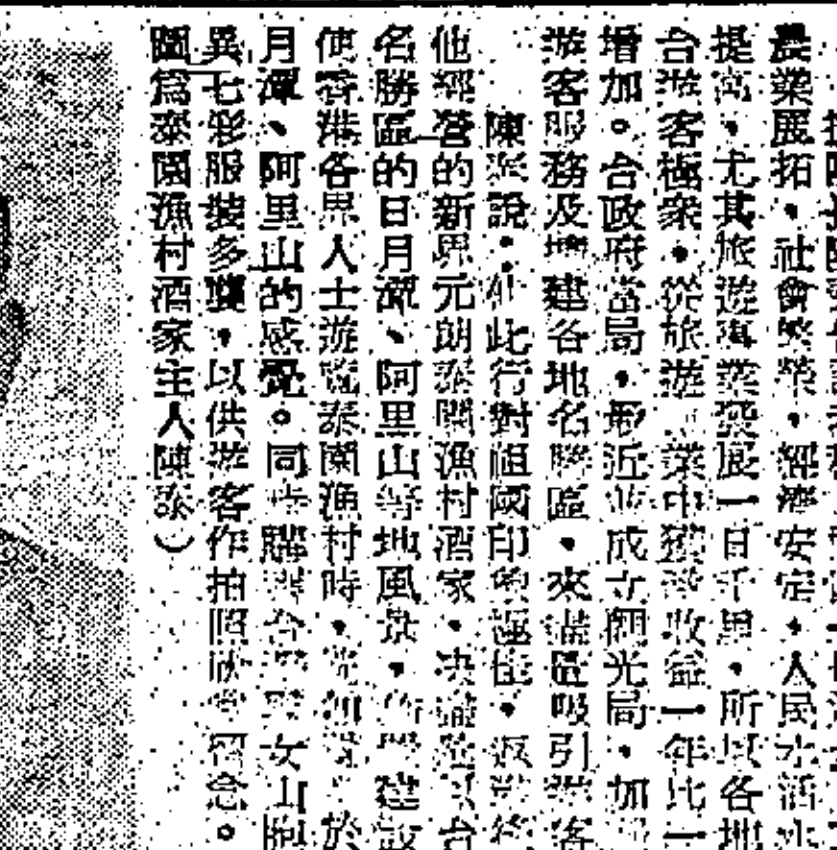 農業展拓，社會繁榮，經濟安定，人民水活水
提高，尤其旅遊事業發展一日千里，所以各地
台游客極衆，從旅游業中獲收益一年比一
增加。台政府當局，最近並成立觀光局，加
游客服務及增建各地名勝區，來儘量吸引游客
陳泰說：他此行對祖國印象極佳，返港後
他經營的新界元朗泰園漁村酒家，決議以台
名勝區的日月潭、阿里山等地風景，建設
使香港各界人士游覽泰園漁村時，如於
月潭、阿里山的感覺。同時購台女山胞
異七彩服裝多襲，以供游客作拍照留念。
圖爲泰園漁村酒家主人陳泰）